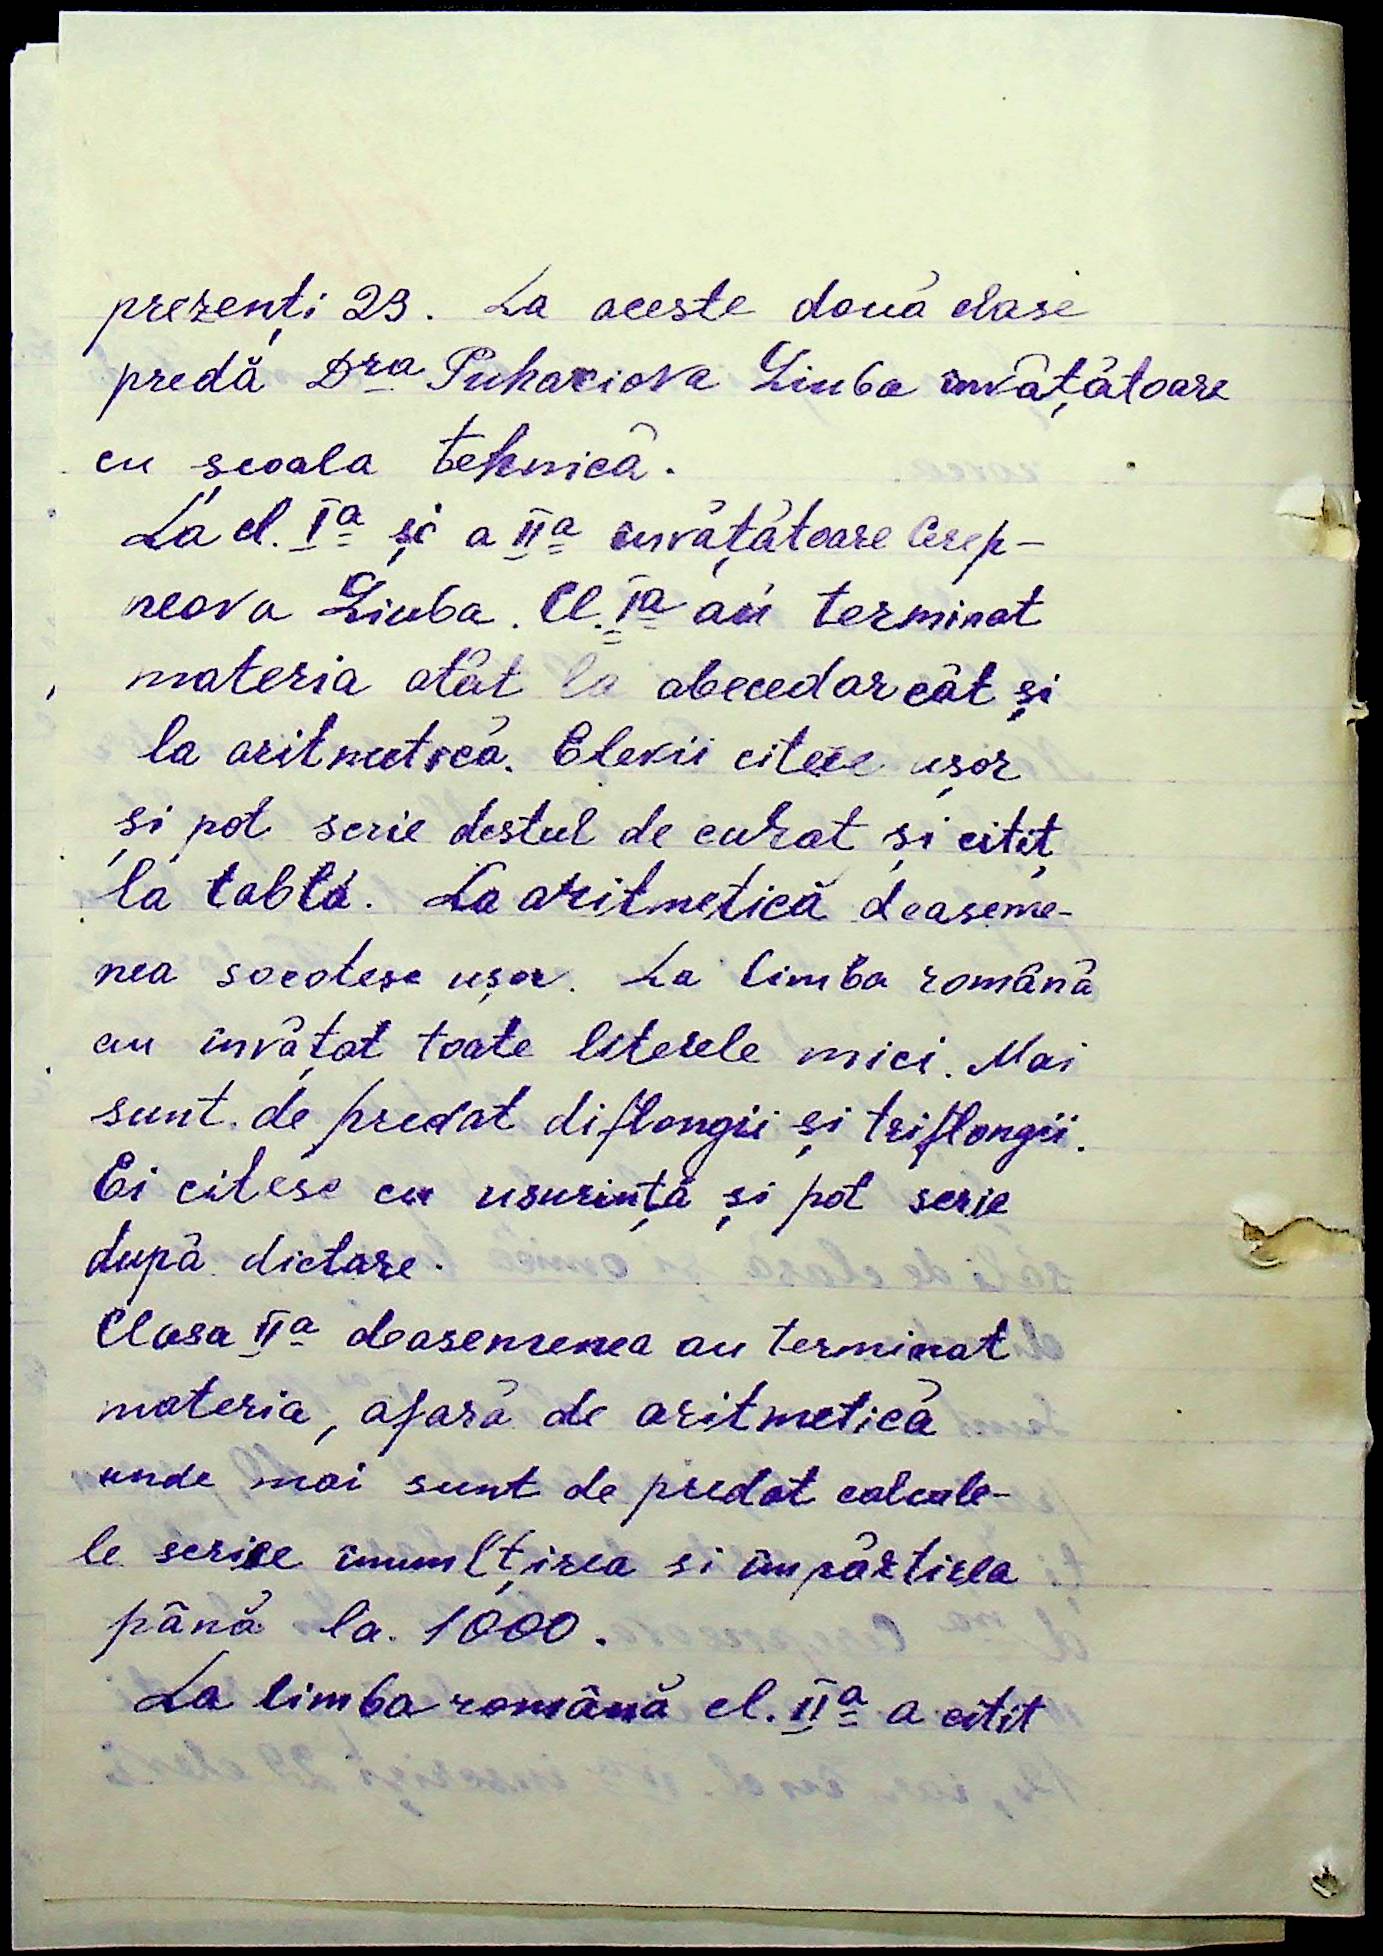 prezenți 23. La aceste două clase
predă Dra Puhaciova Liuba învățătoare
cu școala tehnică.
La cl. Ia și a IIa învățătoare Cerep-
neova Liuba. Cl. Ia au terminat
materia atât la abecedar cât și
la aritmetică. Elevii citesc ușor
și pot scrie destul de curat și citit
la tablă. La aritmetică deaseme-
nea socotesc ușor. La limba română
au învățat toate literele mici. Mai
sunt de predat diftongii și triftongii.
Ei citesc cu usurință și pot scrie
după dictare.
Clasa IIa deasemenea au terminat
materia, afară de aritmetică
unde mai sunt de predat calcule-
le scrise înmulțirea si împărtirea
până la 1000.
La limba română cl. IIa a citit